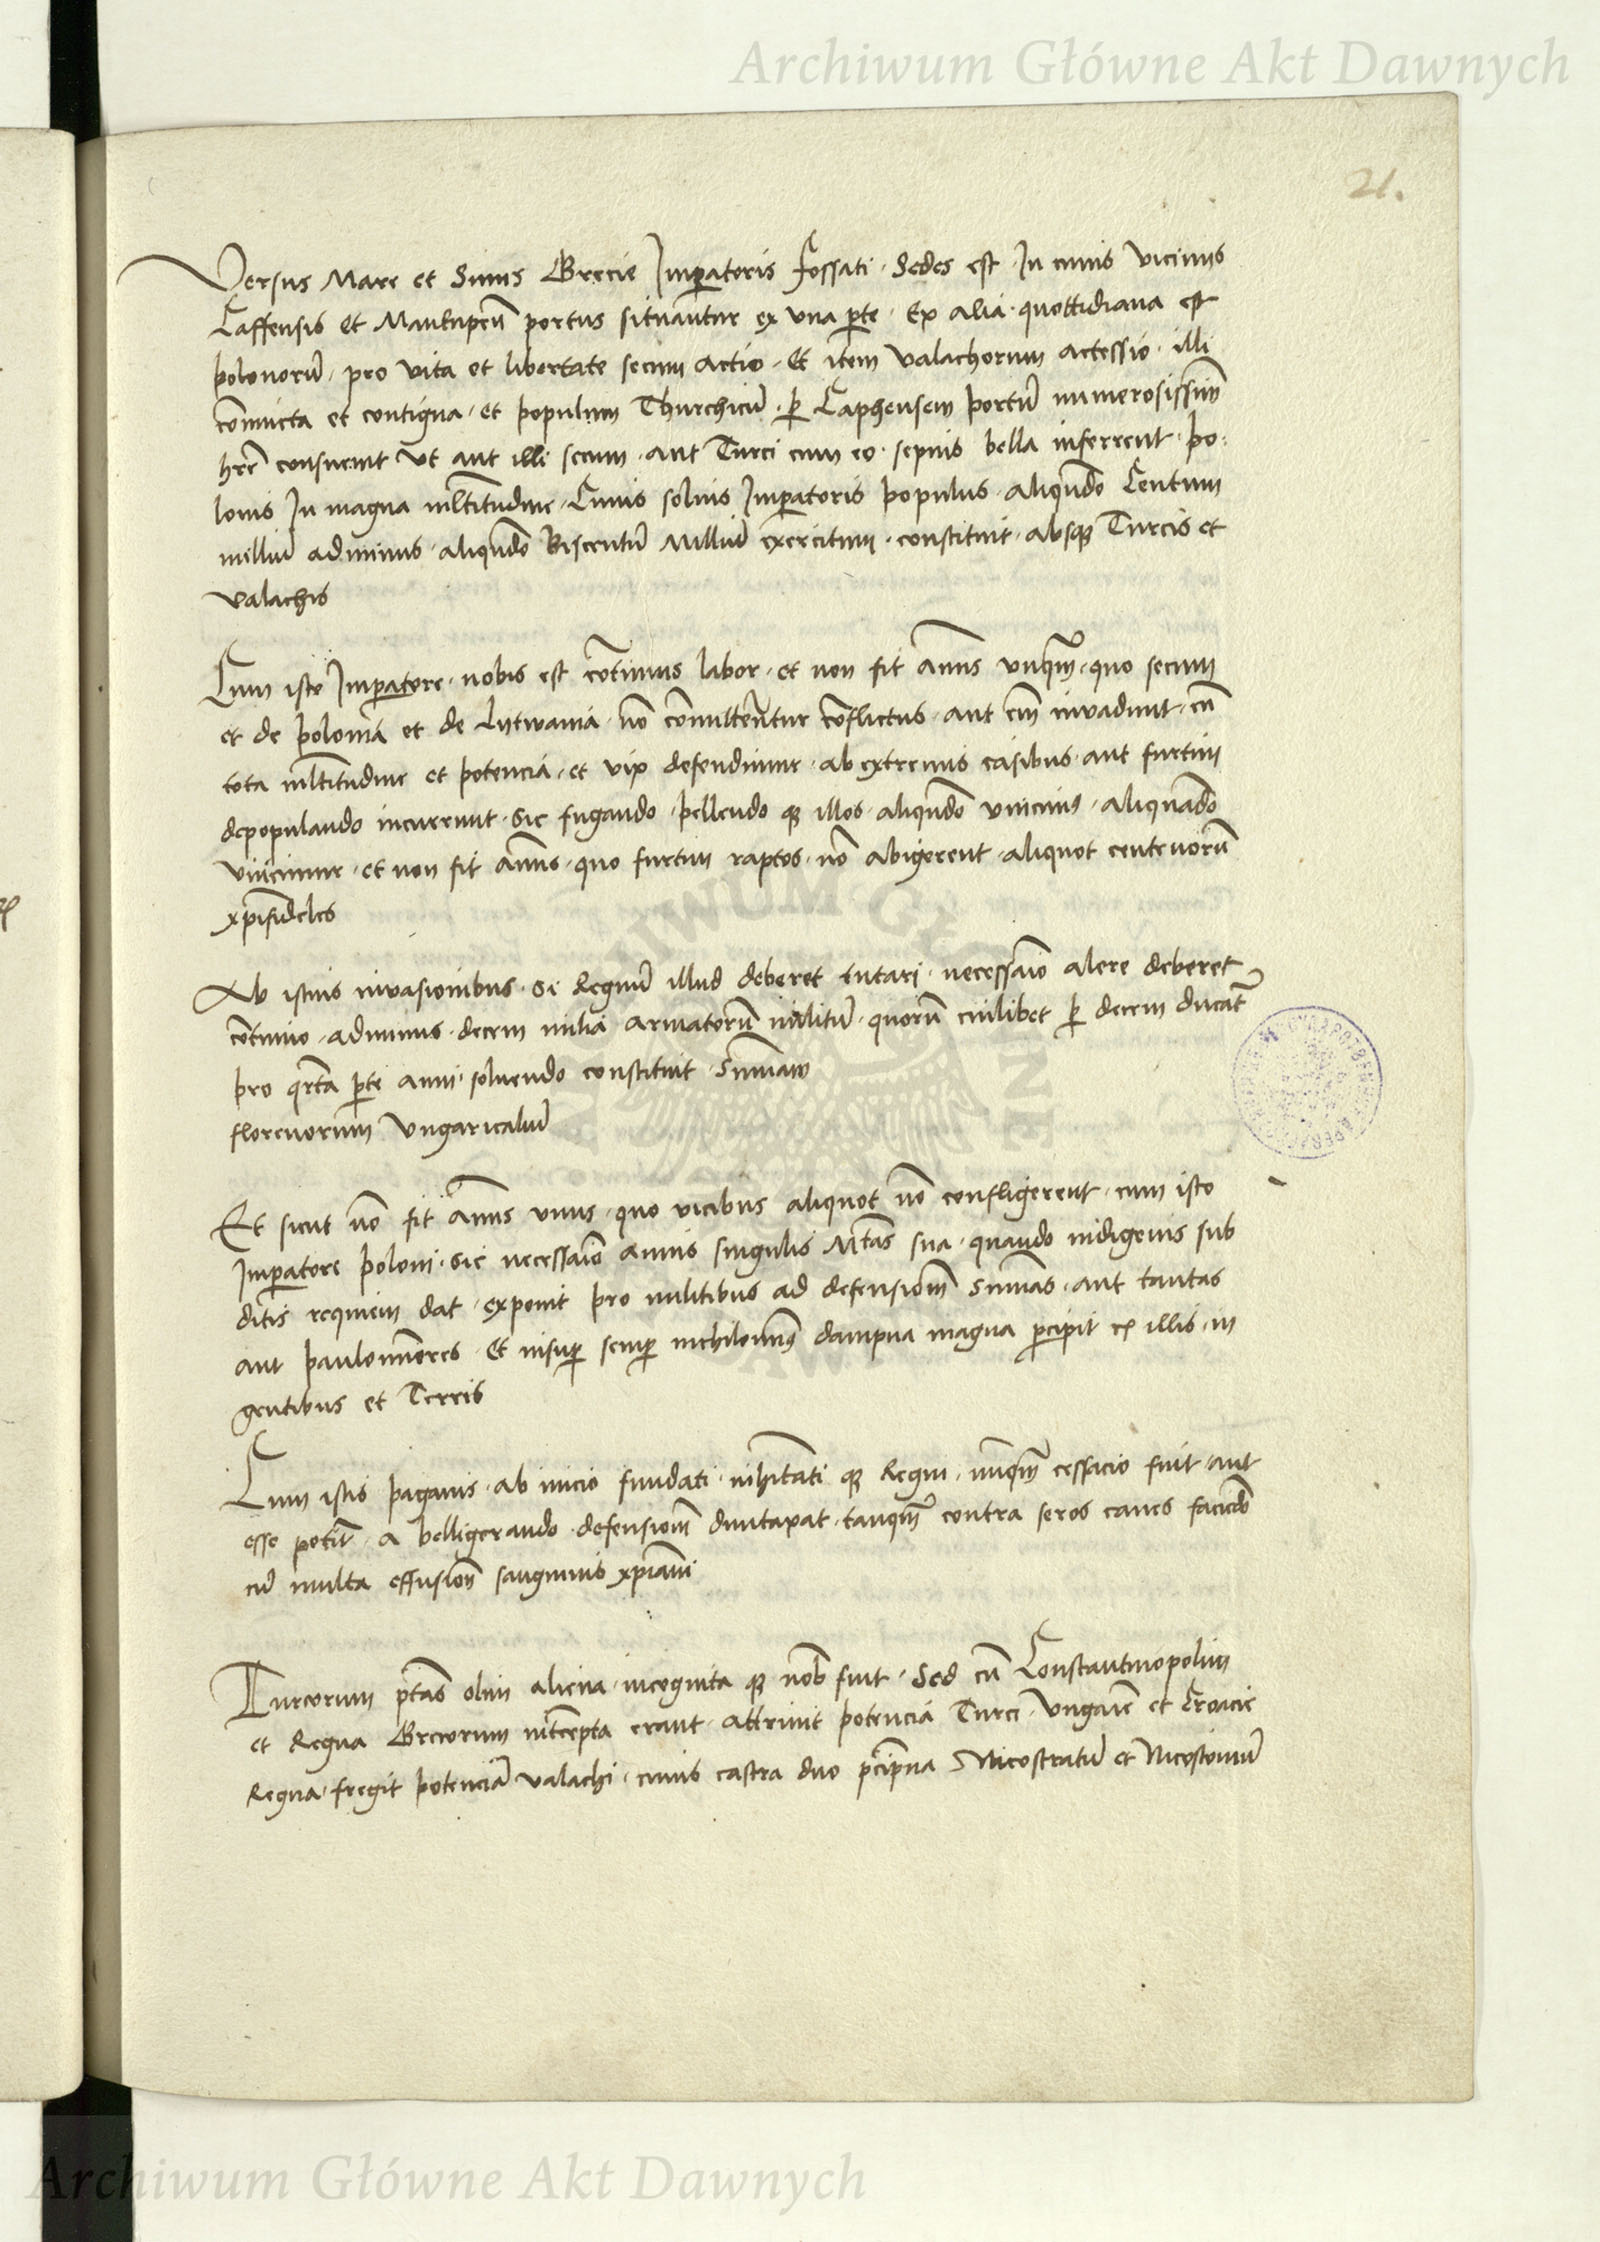 Archiwum Główne Akt Dawnych
21.
Versus Mare et Sinus Grecie Imperatoris fossati · Sedes est · In cuius vicinius
Caffensis et Mankuprum portus situantur ex una parte · Ex alia · quottidiana est
polonorum · pro vita et libertate secum actio · Et item valachorum accessio · illi
conuicta et contigua · et populum Thurchicum · per Caphensem portum numerosissimum
habere consueuit Ut aut illi secum · aut Turci cum eo · sepius bella inferrent · po:
lonis In magna multitudine · Cuius solius Imperatoris populus · aliquando Centum
millium adminus · aliquando Biscentum Millium exercitum · constituit · absque Turcis et
valachis
Cum isto Imperatore · nobis est continuus labor · et non fit annus unquam · quo secum
et de polonia et de Lytwania · non committerentur conflictus · aut enim invadunt · cum
tota multitudine et potencia · et vix defendimur · ab extremis casibus · aut furtim
depopulando incurrunt · sic fugando · pellendo que illos · aliquando vincimus · aliquando
vincimur · et non fit annus · quo furtim raptos · non abigerent · aliquot centenorum
xpifideles
Ab istius invasionibus · si Regnum illud deberet tutari · necessario alere deberet
continuo · adminus · decem milia armatorum militum · quorum cuilibet per decem ducatos
pro quarta parte anni · soluendo constituit · Summam
florenorum Ungaricalium
Et sicut non fit annus unus · quo vicibus aliquot non confligerent · cum isto
Imperatore poloni · sic necessario annis singulis Mtas sua · quando indigenis sub
ditis requiem dat · exponit pro militibus ad defensionem Summas · aut tantas
aut paulominores · Et insuper semper nichilominus dampna magna percipit ex illis · in
gentibus et Terris
Cum istis paganis · ab inicio fundati · inhitati que Regni · nunquam cessacio fuit · aut
esse potuit · a belligerando · defensionem duntaxat · tanquam contra feros canes faciendo
cum multa effusione sanguinis xpiani
Turcorum ptas olim aliena · incognita que nobis fuit · Sed cum Constantinopolim
et Regna Grecorum intercepta erant · attrivit potencia Turci · Ungarie et Croacie
Regna · fregit potenciam valachi · cuius castra duo precipua Nicostratum et Nicostomum
Archiwum Główne Akt Dawnych